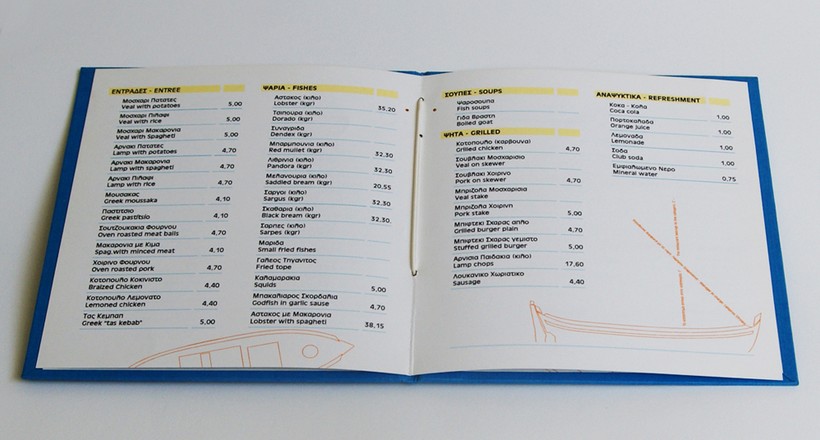 ΕΝΤΡΑΔΕΣ - ENTREE
Μοσχαρι Πατατες
Veal with potatoes 5,00
Μοσχαρι Πιλαφι
Veal with rice 5,00
Μοσχαρι Μακαρονια
Veal with Spagheti 5,00
Αρνακι Πατατες
Lamp with potatoes 4,70
Αρνακι Μακαρονια
Lamp with spagheti 4,70
Αρνακι Πιλαφι
Lamp with rice 4,70
Μουσακας
Greek moussaka 4,10
Παστιτσιο
Greek pastitsio 4,10
Σουτζουκακια Φουρνου
Oven roasted meat balls 4,70
Μακαρονια με Κιμα
Spag.with minced meat 4,10
Χοιρινο Φουρνου
Oven roasted pork 4,70
Κοτοπουλο Κοκινιστο
Braized Chicken 4,40
Κοτοπουλο Λεμονατο
Lemoned chicken 4,40
Τας Κεμπαπ
Greek "tas kebab" 5,00
ΨΑΡΙΑ - FISHES
Αστακος (κιλο)
Lobster (kgr) 35,20
Τσιπουρα (κιλο)
Dorado (kgr)
Συναγριδα
Dendex (kgr)
Μπαρμπουνια (κιλο)
Red mullet (kgr) 32,30
Λιθρινια (κιλο)
Pandora (kgr) 32,30
Μελανουρια (κιλο)
Saddled bream (kgr) 20,55
Σαργοι (κιλο)
Sargus (kgr) 32,30
Σκαθαρια (κιλο)
Black bream (kgr) 32,30
Σαρπες (κιλο)
Sarpes (kgr)
Μαριδα
Small fried fishes
Γαλεος Τηγανιτος
Fried tope
Καλαμαρακια
Squids 5,00
Μπακαλιαρος Σκορδαλια
Godfish in garlic sause 4,70
Αστακος με Μακαρονια
Lobster with spagheti 38,15
ΣΟΥΠΕΣ - SOUPS
Ψαροσουπα
Fish soups
Γιδα Βραστη
Boiled goat
ΨΗΤΑ - GRILLED
Κοτοπουλο (καρβουνα)
Grilled chicken 4,70
Σουβλακι Μοσχαρισιο
Veal on skewer
Σουβλακι Χοιρινο
Pork on skewer 4,70
Μπριζολα Μοσχαρισια
Veal stake
Μπριζολα Χοιρινη
Pork stake 5,00
Μπιφτεκι Σχαρας απλο
Grilled burger plain 4,70
Μπιφτεκι Σχαρας γεμιστο
Stuffed grilled burger 5,00
Αρνισια Παιδακια (κιλο)
Lamp chops 17,60
Λουκανικο Χωριατικο
Sausage 4,40
ΑΝΑΨΥΚΤΙΚΑ - REFRESHMENT
Κοκα - Κολα
Coca cola 1,00
Πορτοκαλαδα
Orange juice 1,00
Λεμοναδα
Lemonade 1,00
Σοδα
Club soda 1,00
Εμφιαλωμενο Νερο
Mineral water 0,75